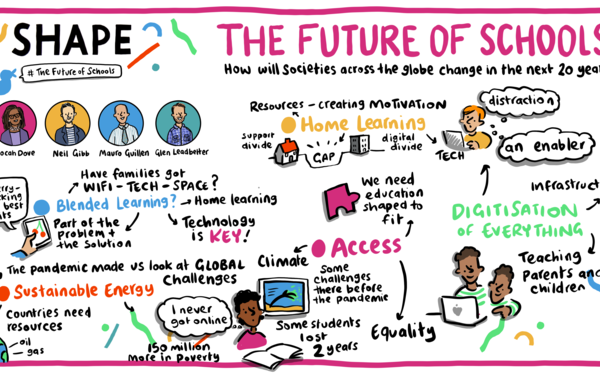 SHAPE
# The Future of Schools
THE FUTURE OF SCHOOLS
How will societies across the globe change in the next 20 year
Dove
Neil Gibb
Mauro Guillen
Glen Leadbetter
Have families got
WIFI - TECH - SPACE?
best
Blended Learning?
Home learning
Part of the
problem +
the solution
Technology
is KEY!
The pandemic made us look at GLOBAL
Challenges
Climate
Sustainable Energy
Countries need
resources
oil
gas
I never
got online!
150 million
more in poverty
Some students
lost
2 years
Resources - creating MOTIVATION
Home Learning
support
divide
GAP
digital
divide
TECH
distraction
an enabler
We need
education
shaped to
fit
Access
Some
challenges
there before
the pandemic
Equality
Infrastruct
DIGITISATION
OF EVERYTHING
Teaching
Parents and
children